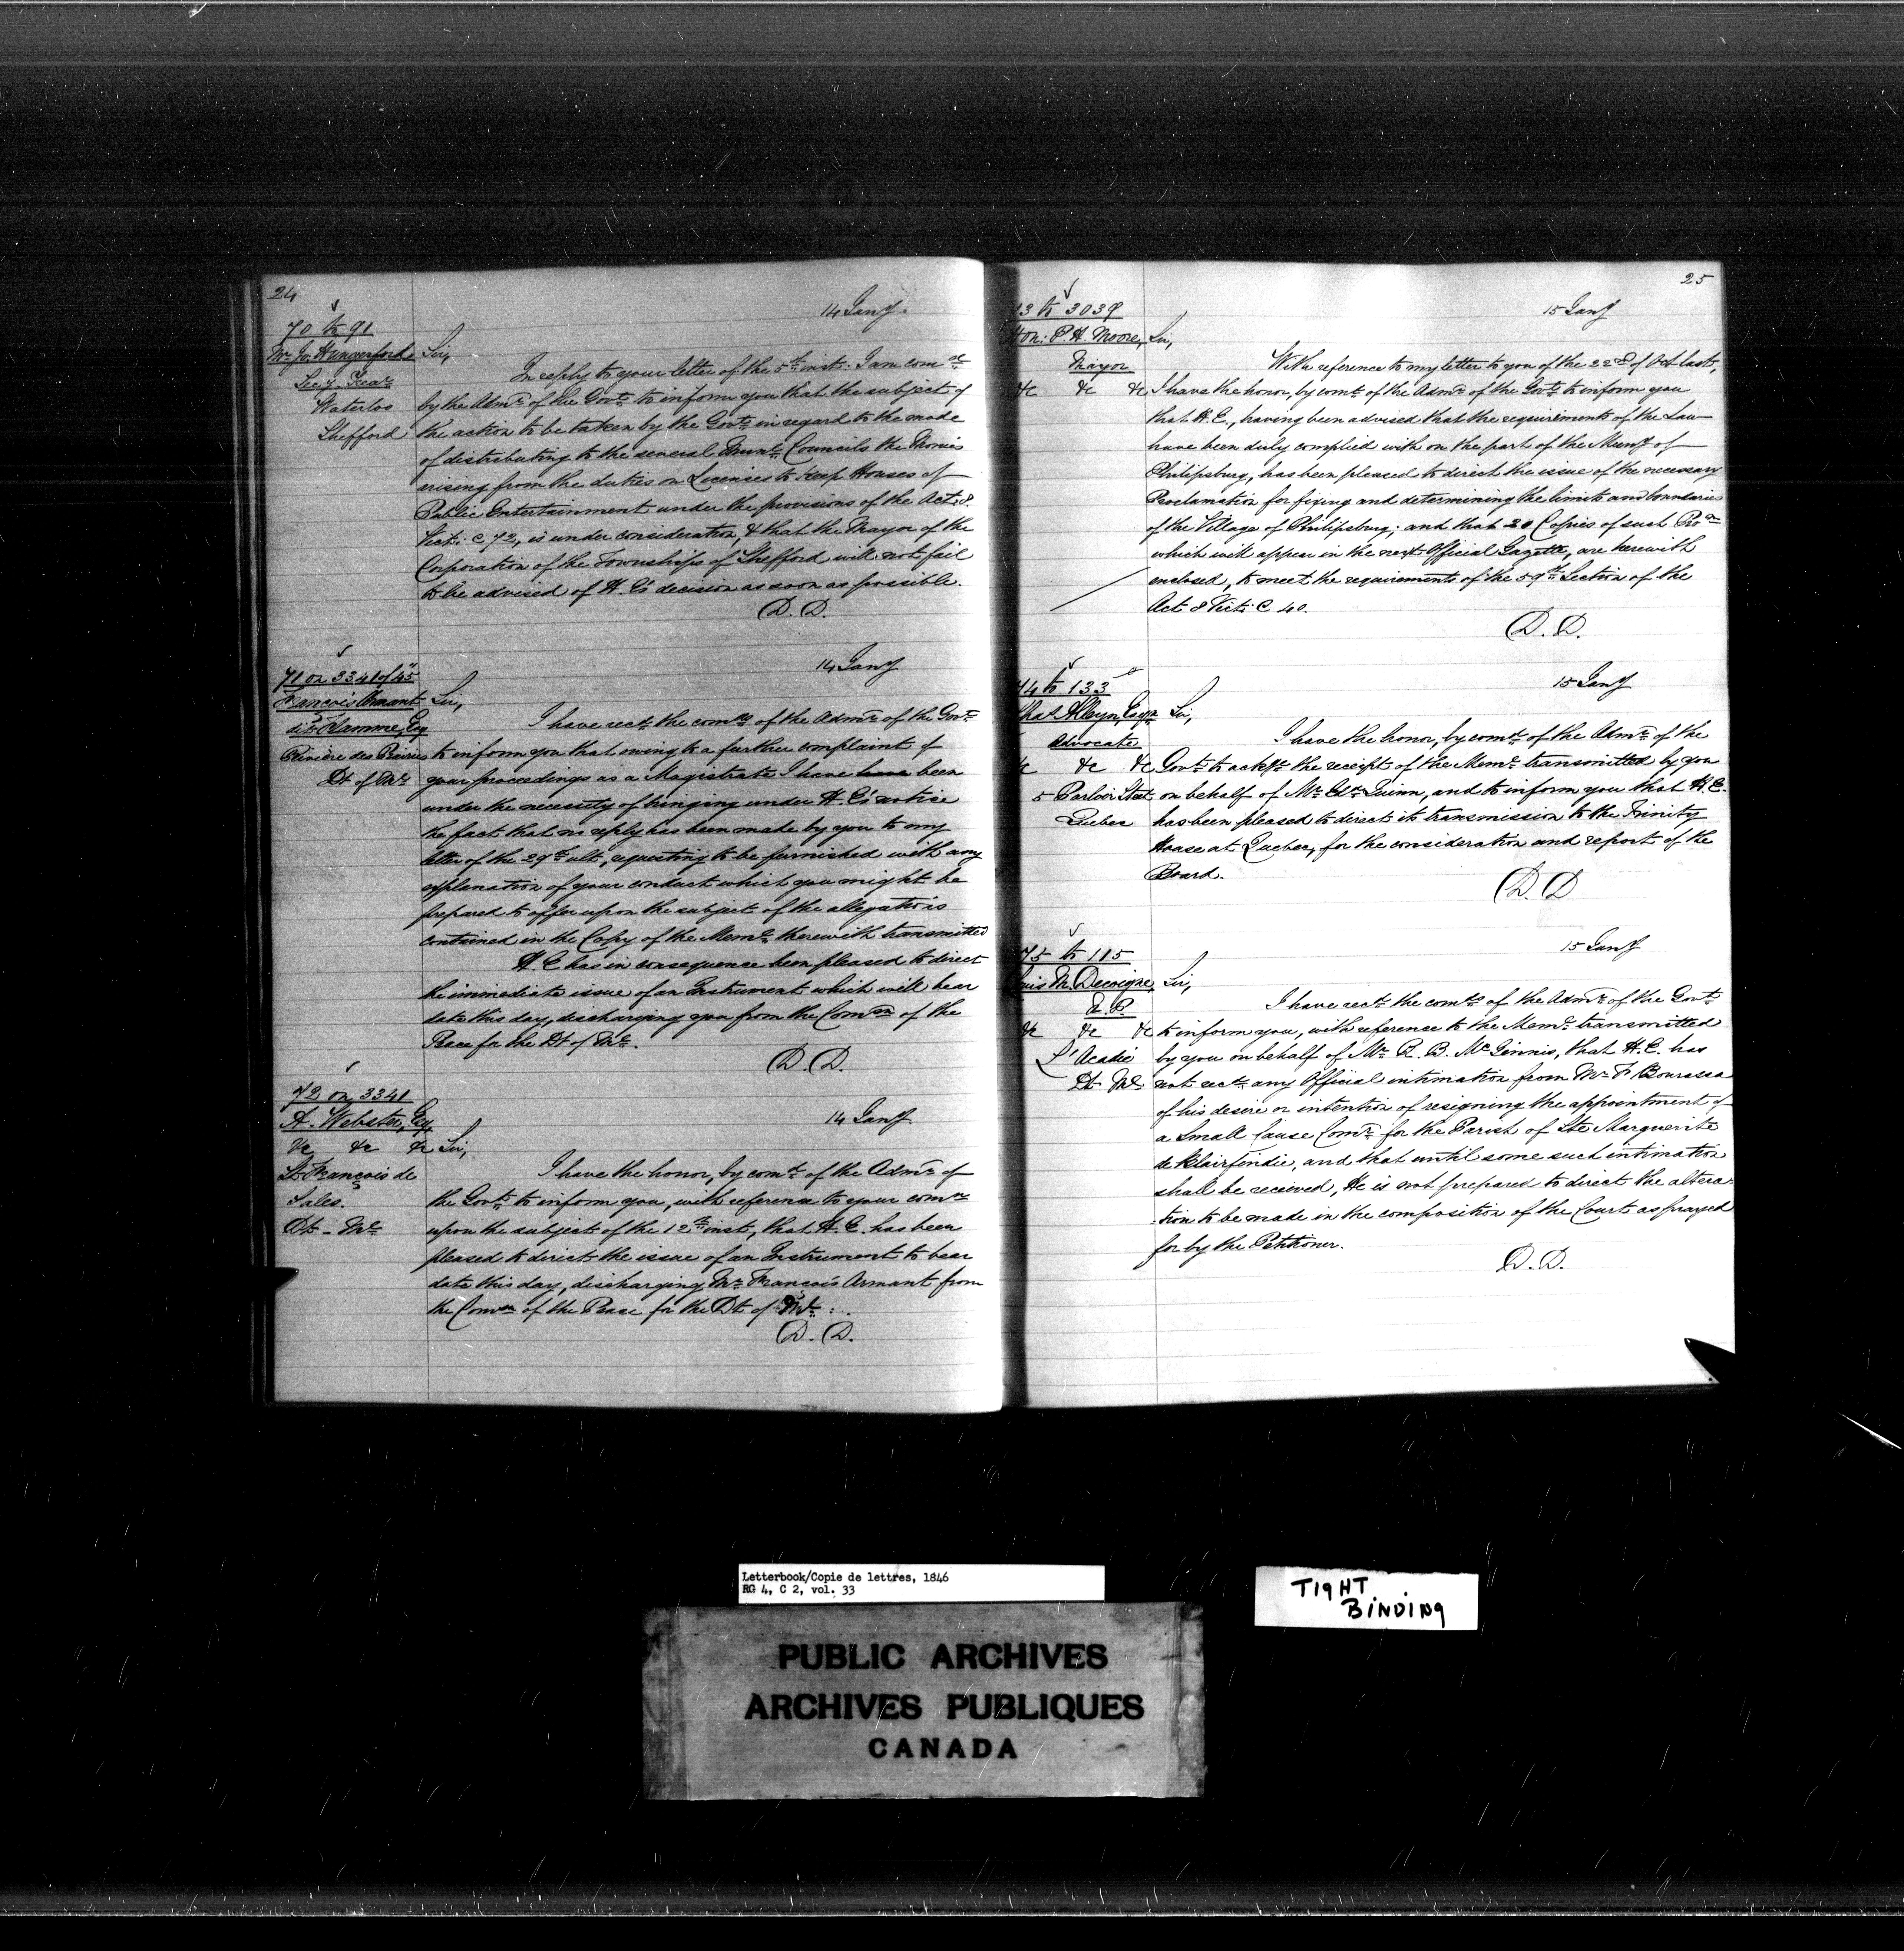 24
14 Jany.
70 to 91
Mr Jo: Hungerford
Secy. Trear
Waterloo
Shefford
Sir,
In reply to your letter of the 5th inst: I am comd
by the Admr of the Govt to inform you that the subject of
the action to be taken by the Govt in regard to the mode
of distributing to the several Munl Councils the Monies
arising from the duties on Licenses to keep Houses of
Public Entertainment under the provisions of the Act: 8.
Vict: c 72, is under consideration, & that the Mayor of the
Corporation of the Townships of Shefford will not fail
to be advised of H. E's decision as soon as possible.
D. D.
14 Jany
71 on 3341 of 45
François Armant
dit Flamme, Esq
Rivière des Prairies
Dt of Ml
Sir,
I have recd the comds of the Admr of the Govt
to inform you that owing to a further complaint of
your proceedings as a Magistrate I have have been
under the necessity of bringing under H. E's notice
the fact that no reply has been made by you to my
letter of the 29th ult, requesting to be furnished with any
explanation of your conduct which you might be
prepared to offer upon the subject of the allegations
contained in the Copy of the Meml therewith transmitted
H. E has in consequence been pleased to direct
the immediate issue of an Instrument which will bear
date this day, discharging you from the Comon of the
Peace for the Dt of Ml.
D. D.
72 on 3341
A. Webster, Esq
&c &c &c
St François de
Sales.
Dt - Ml
14 Jany
Sir,
I have the honor, by comd of the Admr of
the Govt, to inform you, with reference to your comn
upon the subject of the 12th inst, that H. E. has been
pleased to direct the issue of an Instrument to bear
date this day, discharging Mr François Armant from
the Comon of the Peace for the Dt of Ml.
D. D.
25
15 Jany
73 to 3039
Hon: P. H. Moore,
Mayor
&c &c &c
Sir,
With reference to my letter to you of the 22d of Oct last,
I have the honor, by comd of the Admr of the Govt to inform you
that H. E., having been advised that the requirements of the Law
have been duly complied with on the part of the Muny of
Philipsburg, has been pleased to direct the issue of the necessary
Proclamation for fixing and determining the limits and boundaries
of the Village of Philipsburg; and that 20 Copies of such Pron
which will appear in the next Official Gazette, are herewith
enclosed, to meet the requirements of the 59th Section of the
Act 8 Vict: C 40.
D. D.
15 Jany
74 to 133
Chas Alleyn, Esqr
Advocate
&c &c &c
5 Parloir Street
Quebec
Sir,
I have the honor, by comd of the Admr of the
Govt to ackge the receipt of the Meml transmitted by you
on behalf of Mr Quinn, and to inform you that H. E.
has been pleased to direct its transmission to the Trinity
House at Quebec, for the consideration and report of the
Board.
D. D
15 Jany
75 to 115
Louis M. Decoigne,
N. P.
&c &c &c
L'Acadie
Dt Ml
Sir,
I have recd the comds of the Admr of the Govt
to inform you, with reference to the Meml transmitted
by you on behalf of Mr R. B. McGinnis, that H. E. has
not recd any Official intimation from Mr F. Bourassa
of his desire or intention of resigning the appointment of
a Small Cause Comr for the Parish of Ste Marguerite
de Blairfindie, and that until some such intimation
shall be received, He is not prepared to direct the altera
-tion to be made in the composition of the Court as prayed
for by the Petitioner.
D. D.
Letterbook/Copie de lettres, 1846
RG 4, C 2, vol. 33
TIGHT
BINDING
PUBLIC ARCHIVES
ARCHIVES PUBLIQUES
CANADA